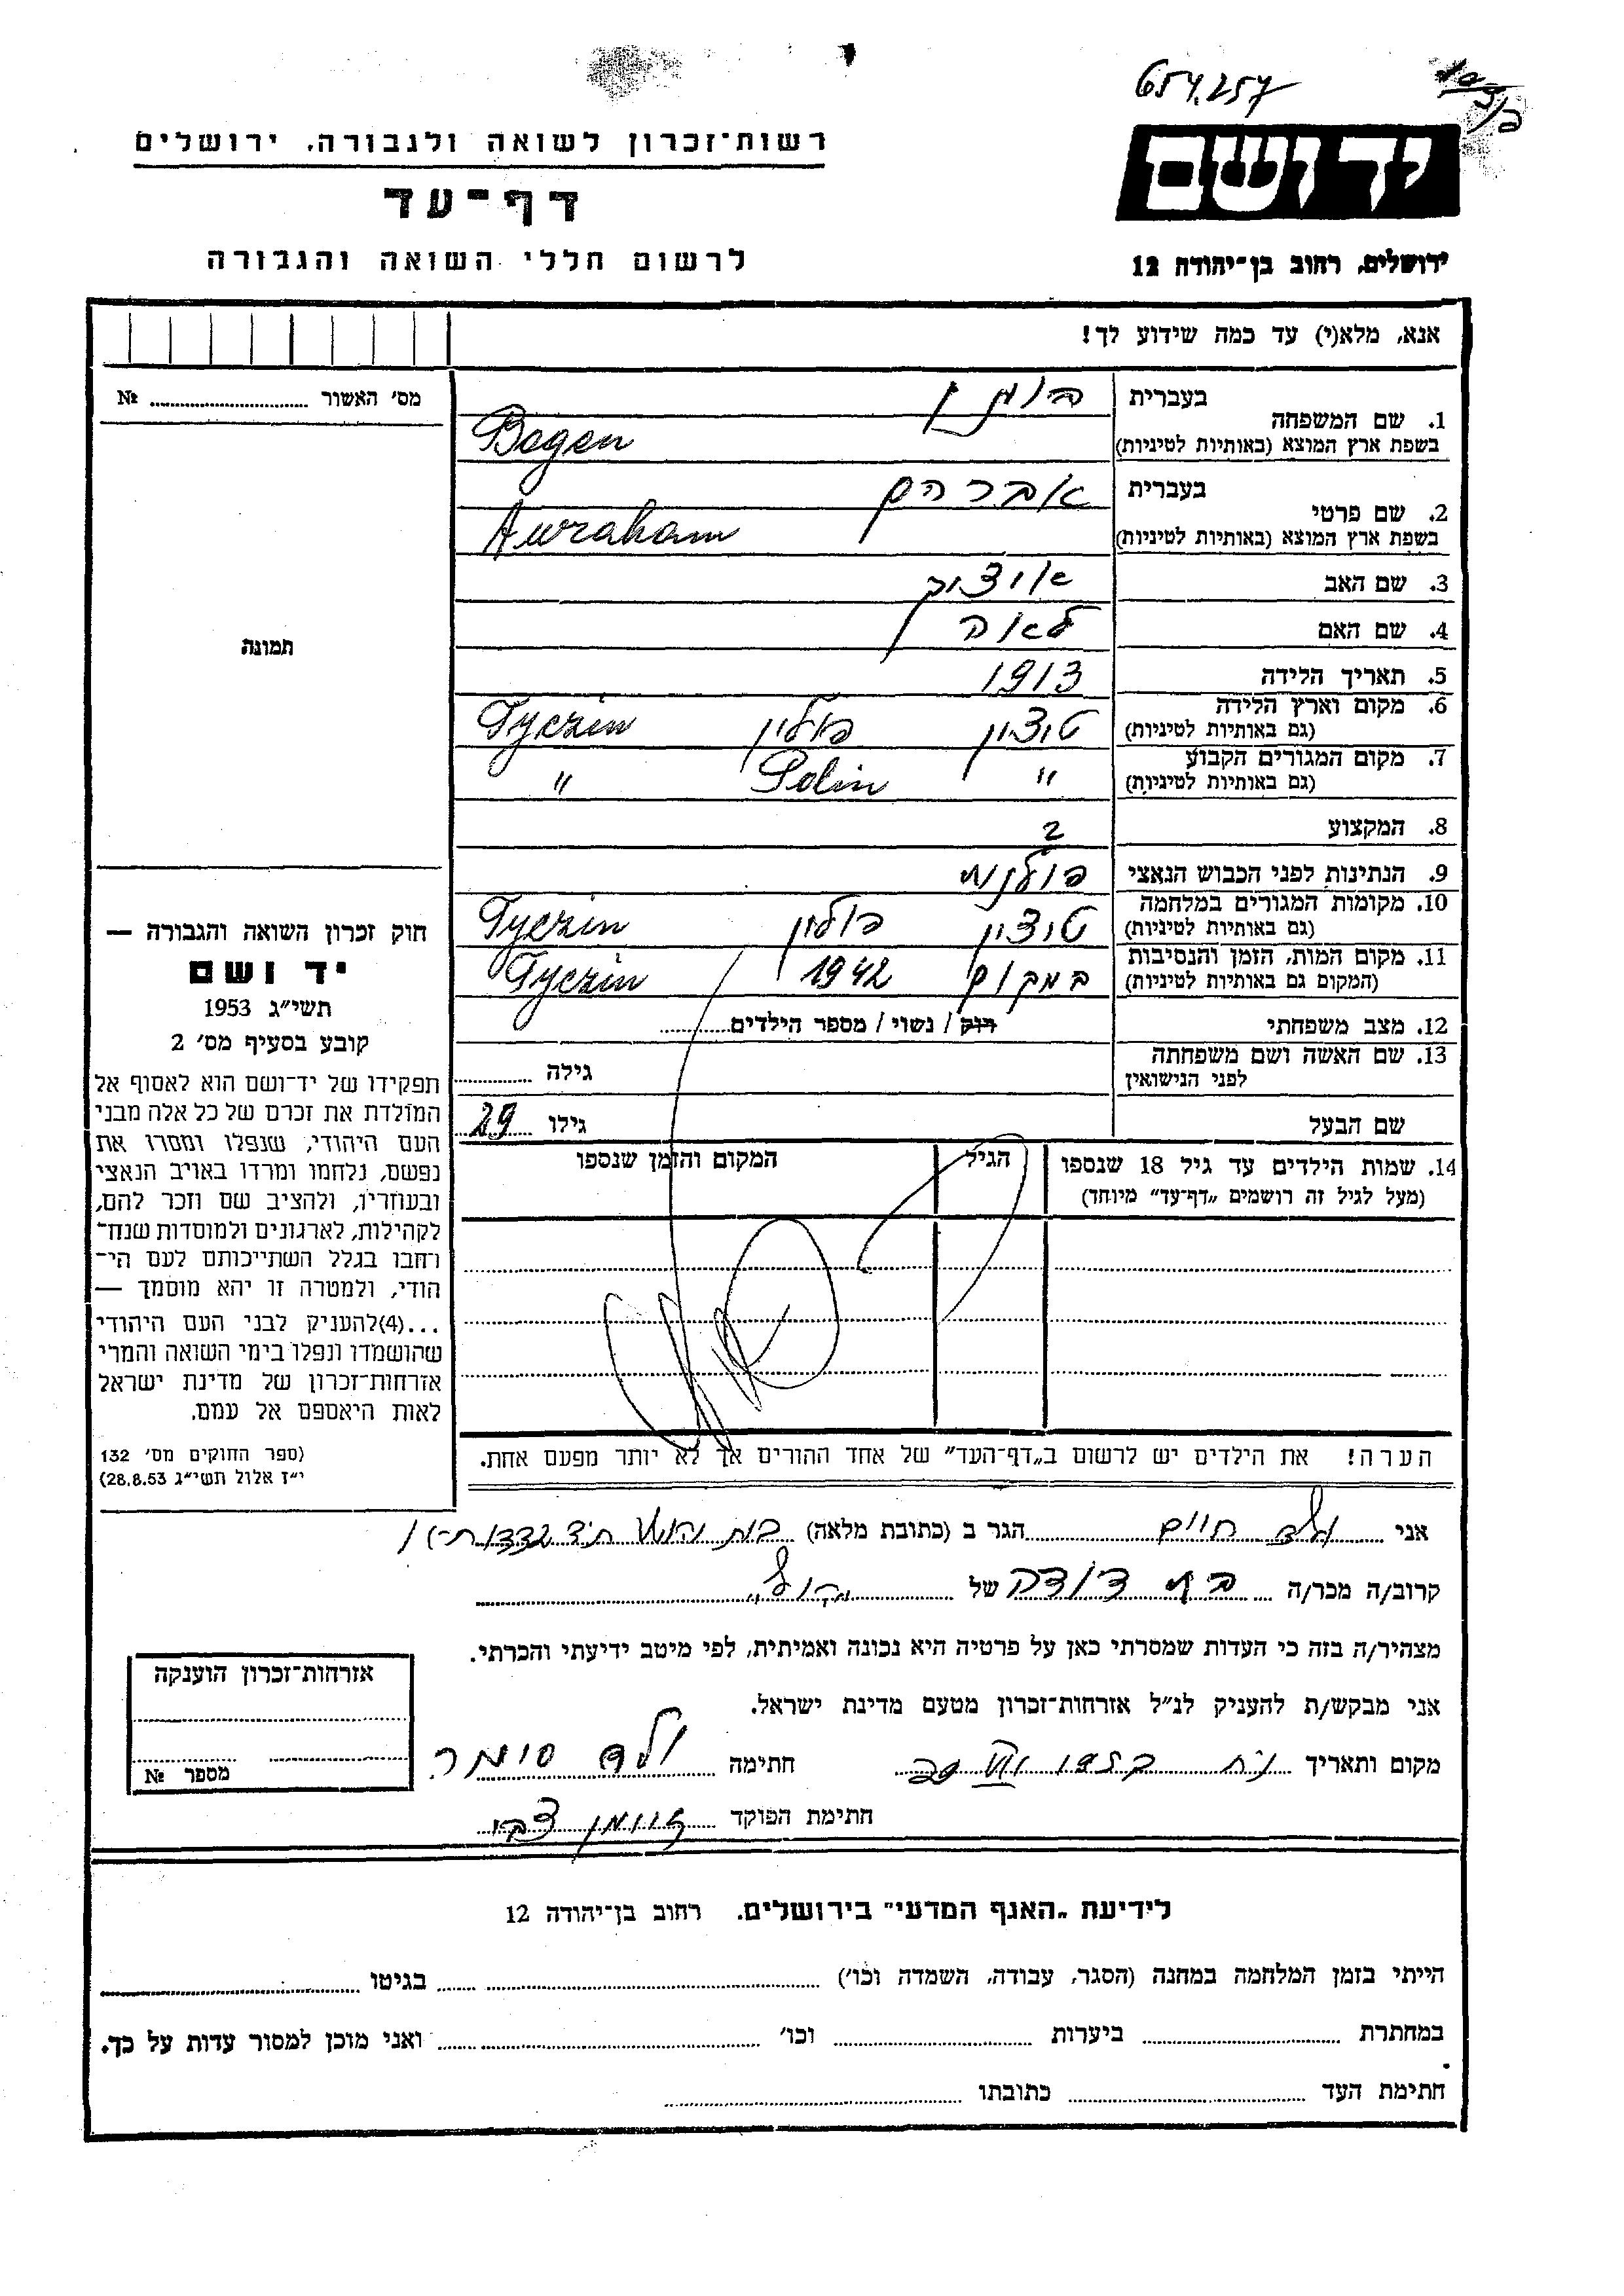 654.257
רשות־זכרון לשואה ולגבורה. ירושלים
יד ושם
דף־עד
לרשום חללי השואה והגבורה
ירושלים, רחוב בן־יהודה 12
אנא, מלא(י) עד כמה שידוע לך!
מס׳ האשור № 
תמונה
חוק זכרון השואה והגבורה —
יד ושם
תשי״ג 1953
קובע בסעיף מס׳ 2
תפקידו של יד־ושם הוא לאסוף אל
המולדת את זכרם של כל אלה מבני
העם היהודי, שנפלו ומסרו את
נפשם, נלחמו ומרדו באויב הנאצי
ובעוזריו, ולהציב שם וזכר להם,
לקהילות, לארגונים ולמוסדות שנח־
רחבו בגלל השתייכותם לעם הי־
הודי, ולמטרה זו יהא מוסמך —
...(4)להעניק לבני העם היהודי
שהושמדו ונפלו בימי השואה והמרי
אזרחות־זכרון של מדינת ישראל
לאות היאספם אל עמם.
(ספר החוקים מס׳ 132
י״ז אלול תשי״ג 28.8.53)
1. שם המשפחה בעברית
בשפת ארץ המוצא (באותיות לטיניות) Bogen
2. שם פרטי בעברית אברהם
בשפת ארץ המוצא (באותיות לטיניות) Awraham
3. שם האב
4. שם האם לאה
5. תאריך הלידה 1913
6. מקום וארץ הלידה (גם באותיות לטיניות) טיצין פולין Tyczin
7. מקום המגורים הקבוע (גם באותיות לטיניות) " Polin "
8. המקצוע
9. הנתינות לפני הכבוש הנאצי
10. מקומות המגורים במלחמה (גם באותיות לטיניות) טיצין פולין Tyczin
11. מקום המות, הזמן והנסיבות (המקום גם באותיות לטיניות) במקום 1942 Tyczin
12. מצב משפחתי רוק / נשוי / מספר הילדים
13. שם האשה ושם משפחתה לפני הנישואין גילה
שם הבעל גילו 29
14. שמות הילדים עד גיל 18 שנספו הגיל המקום והזמן שנספו
(מעל לגיל זה רושמים „דף־עד״ מיוחד)
הערה! את הילדים יש לרשום ב„דף־העד״ של אחד ההורים אך לא יותר מפעם אחת.
אני ולד חיים הגר ב (כתובת מלאה)
קרוב/ה מכר/ה בן דודה של
מצהיר/ה בזה כי העדות שמסרתי כאן על פרטיה היא נכונה ואמיתית, לפי מיטב ידיעתי והכרתי.
אני מבקש/ת להעניק לנ״ל אזרחות־זכרון מטעם מדינת ישראל.
מקום ותאריך חתימה ולד
חתימת הפוקד צבי
אזרחות־זכרון הוענקה
מספר №
לידיעת „האגף המדעי״ בירושלים. רחוב בן־יהודה 12
הייתי בזמן המלחמה במחנה (הסגר, עבודה, השמדה וכו׳) בגיטו
במחתרת ביערות וכו׳ ואני מוכן למסור עדות על כך.
חתימת העד כתובתו